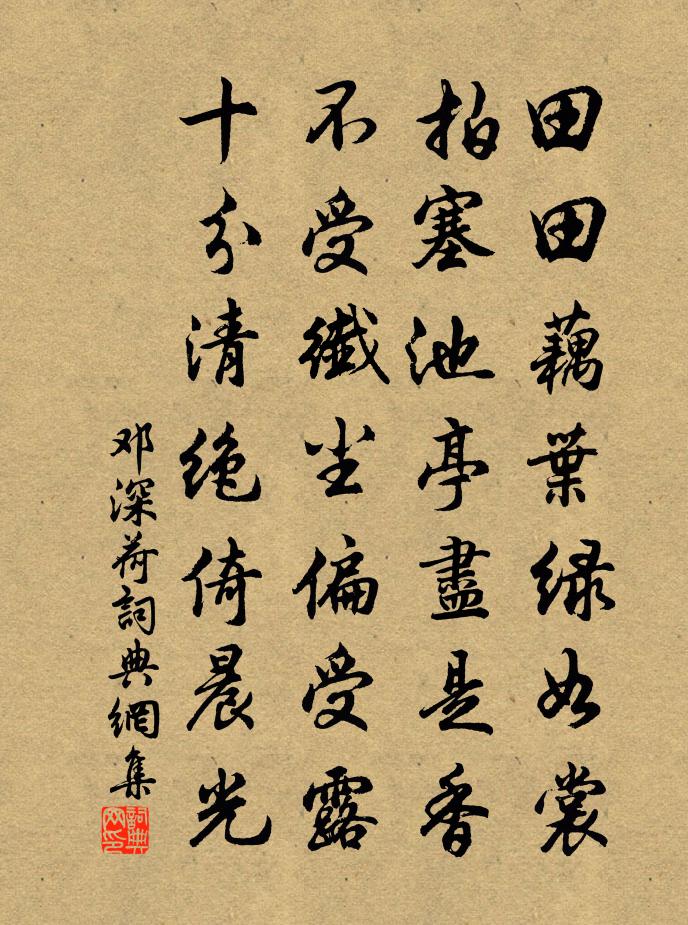 田田藕葉緑如裳
拍塞池亭盡是香
不受纖尘偏受露
十分清绝倚晨光
邓深荷詞典網集
詞典网印